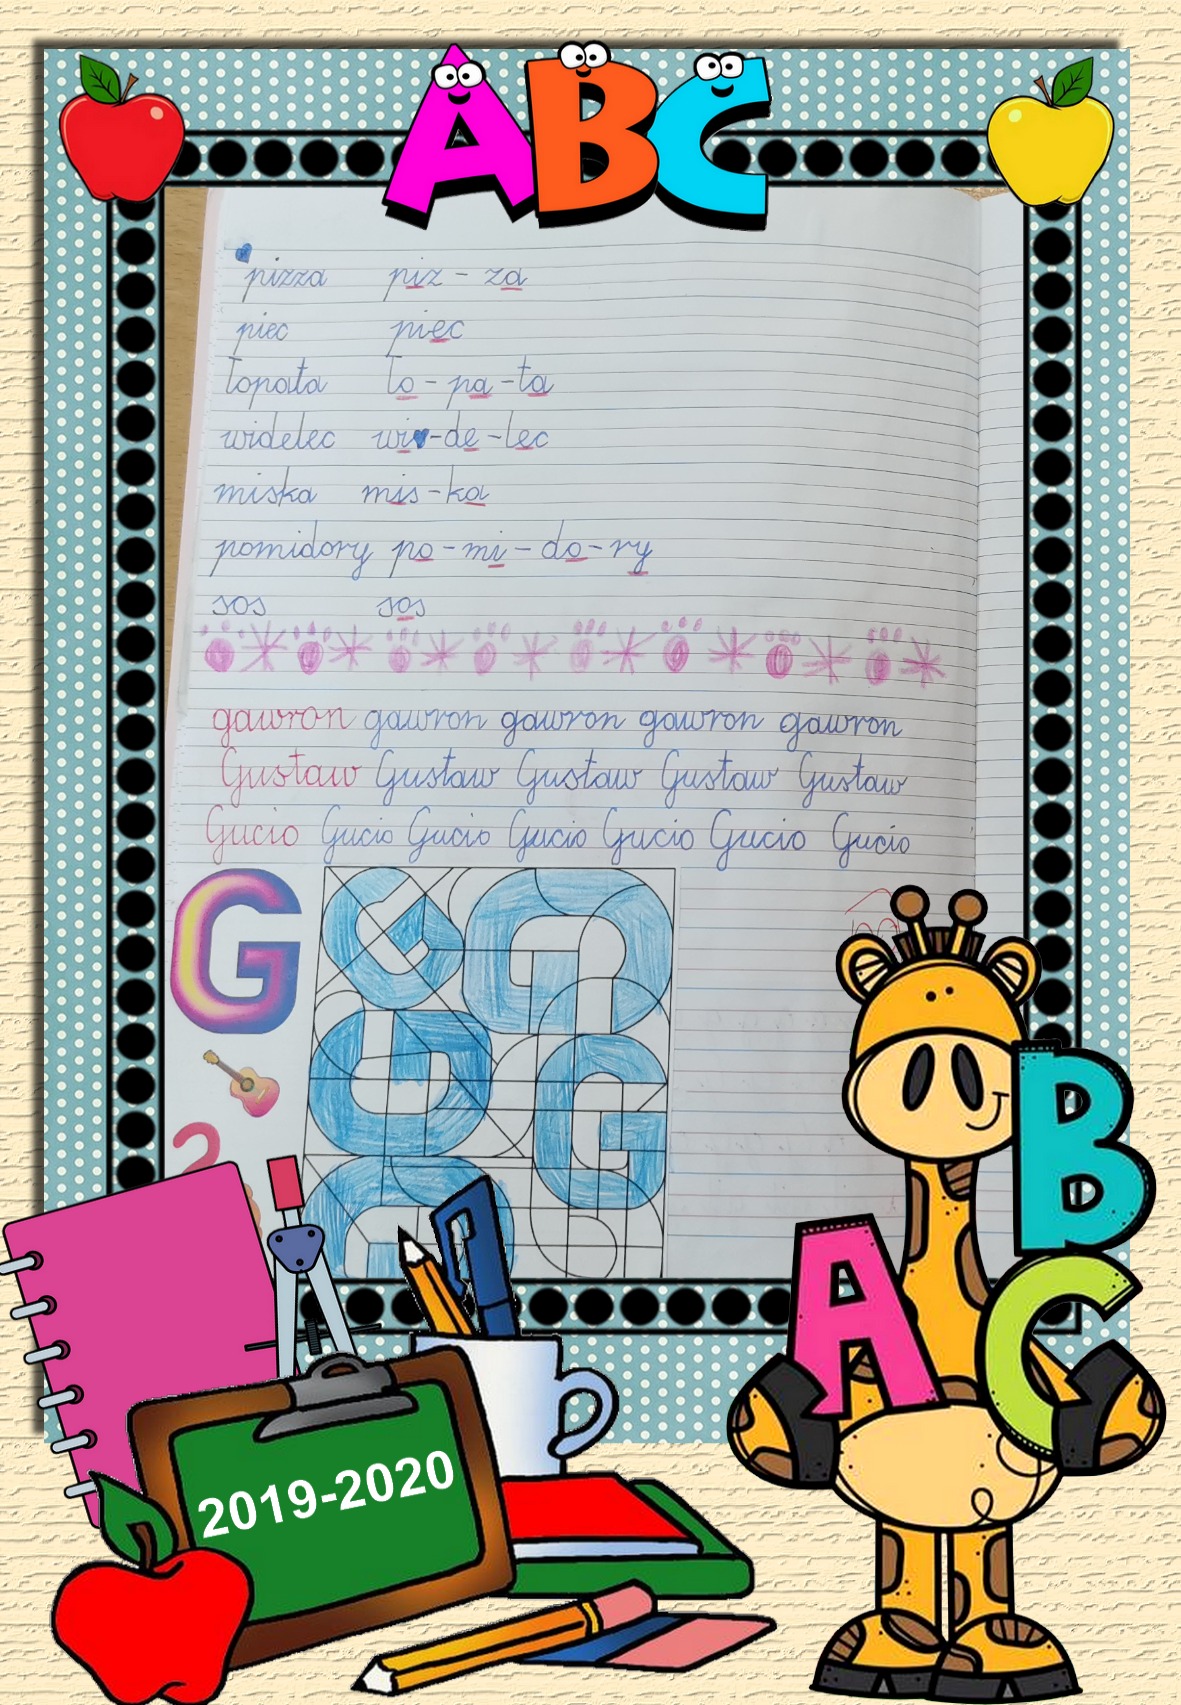 ABC
pizza piz - za
piec piec
łopata ło - pa - ta
widelec wi-de-lec
miska mis-ka
pomidory po-mi-do-ry
sos sos
gawron gawron gawron gawron gawron
Gustaw Gustaw Gustaw Gustaw Gustaw
Gucio Gucio Gucio Gucio Gucio Gucio Gucio
G
B
A C
2019-2020